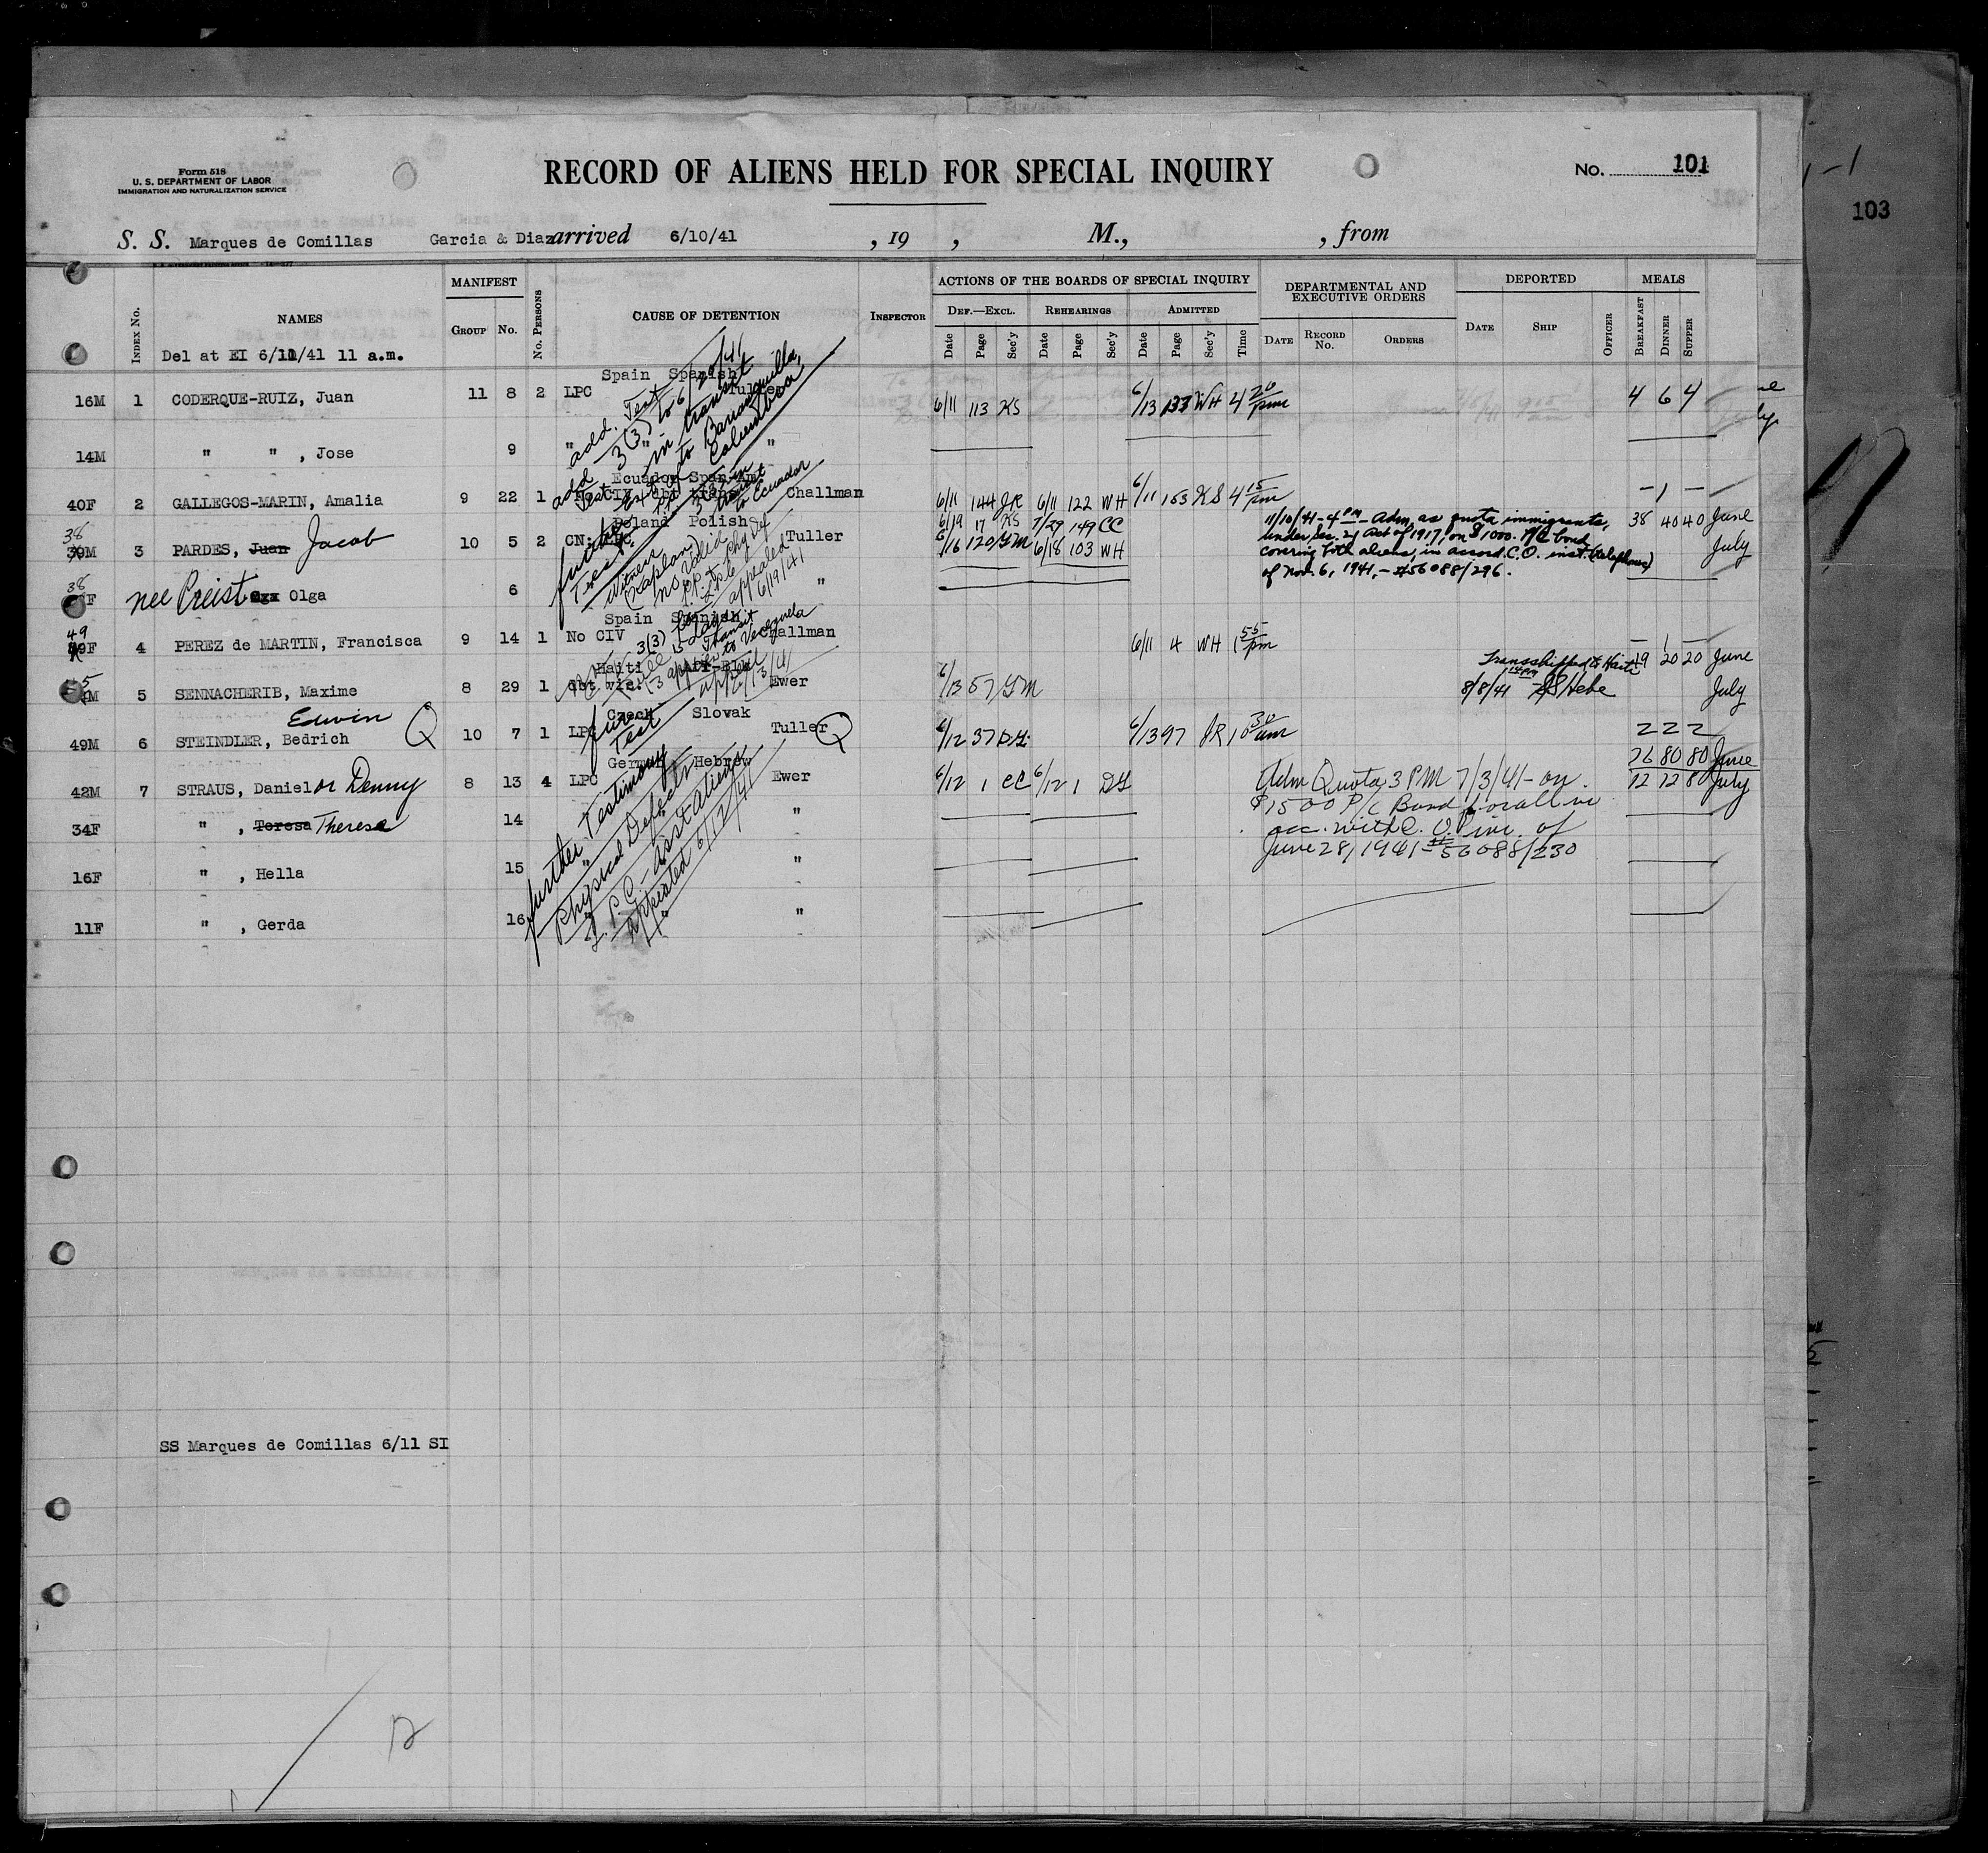 Form 518
U. S. DEPARTMENT OF LABOR
IMMIGRATION AND NATURALIZATION SERVICE
RECORD OF ALIENS HELD FOR SPECIAL INQUIRY
No. 101
103
S. S. Marques de Comillas Garcia & Diaz arrived 6/10/41 , 19 , M., , from
INDEX No. NAMES MANIFEST GROUP No. No. PERSONS CAUSE OF DETENTION INSPECTOR
ACTIONS OF THE BOARDS OF SPECIAL INQUIRY
DEF.—EXCL. REHEARINGS ADMITTED
Date Page Sec'y Date Page Sec'y Date Page Sec'y Time
DEPARTMENTAL AND EXECUTIVE ORDERS
DATE RECORD No. ORDERS
DEPORTED
DATE SHIP OFFICER
MEALS
BREAKFAST DINNER SUPPER
Del at EI 6/11/41 11 a.m.
Spain Spanish
16M 1 CODERQUE-RUIZ, Juan 11 8 2 LPC Tuller 6/11 113 KS 6/13 133 WH 4 20 pm 4 6 4
14M " " , Jose 9 " "
add. Test
3(3) to 6/29/41
in transit
to Barranquilla,
Colombia
Ecuador Span Am
40F 2 GALLEGOS-MARIN, Amalia 9 22 1 No CIV dbt trans Challman 6/11 144 JR 6/11 122 WH 6/11 153 KS 4 15 pm — 1 —
add
Test
transit
to Ecuador
Poland Polish
38
39M 3 PARDES, Juan Jacob 10 5 2 CN: LPC Tuller 6/19 17 KS 7/29 149 CC
6/16 120 GM 6/18 103 WH
11/10/41 - 4 PM - Adm. as quota immigrants,
under Sec. 21 Act of 1917, on $1000. P/C bond
covering both aliens, in accord. C.O. inst. (telephone)
of Nov. 6, 1941, - #56088/296.
38 40 40 June
July
38
F nee Preist Olga 6 "
further
Test.
Witness
(Kaplan)
no valid
appealed
6/19/41
Spain Spanish
49
F 4 PEREZ de MARTIN, Francisca 9 14 1 No CIV Challman 6/11 4 WH 1 55 pm — 1 —
3(3)
15 days
Transit
to Venezuela
Haiti Afr-Blk
5 SENNACHERIB, Maxime 8 29 1 dbt vis. Ewer 6/13 57 GM
appeal
6/13/41
Transshipped to Haiti
8/8/41 SS Hebe
19 20 20 June
July
Czech Slovak
49M 6 STEINDLER, Bedrich Edwin Q 10 7 1 LPC Tuller Q 6/12 37 DH 6/13 97 JR 10 30 am 2 2 2
fur
Test
German Hebrew
42M 7 STRAUS, Daniel or Denny 8 13 4 LPC Ewer 6/12 1 CC 6/12 1 DH
34F " , Teresa Theresa 14 "
16F " , Hella 15 " "
11F " , Gerda 16 " "
further Testimony
Physical Defects
L.P.C. - Asst alien
Appealed 6/12/41
Adm Quota 3 PM 7/3/41 - on
$1500 P/C Bond for all in
acc. with C.O. of
June 28, 1941 - #56088/230
76 80 80 June
12 12 80 July
SS Marques de Comillas 6/11 SI
12